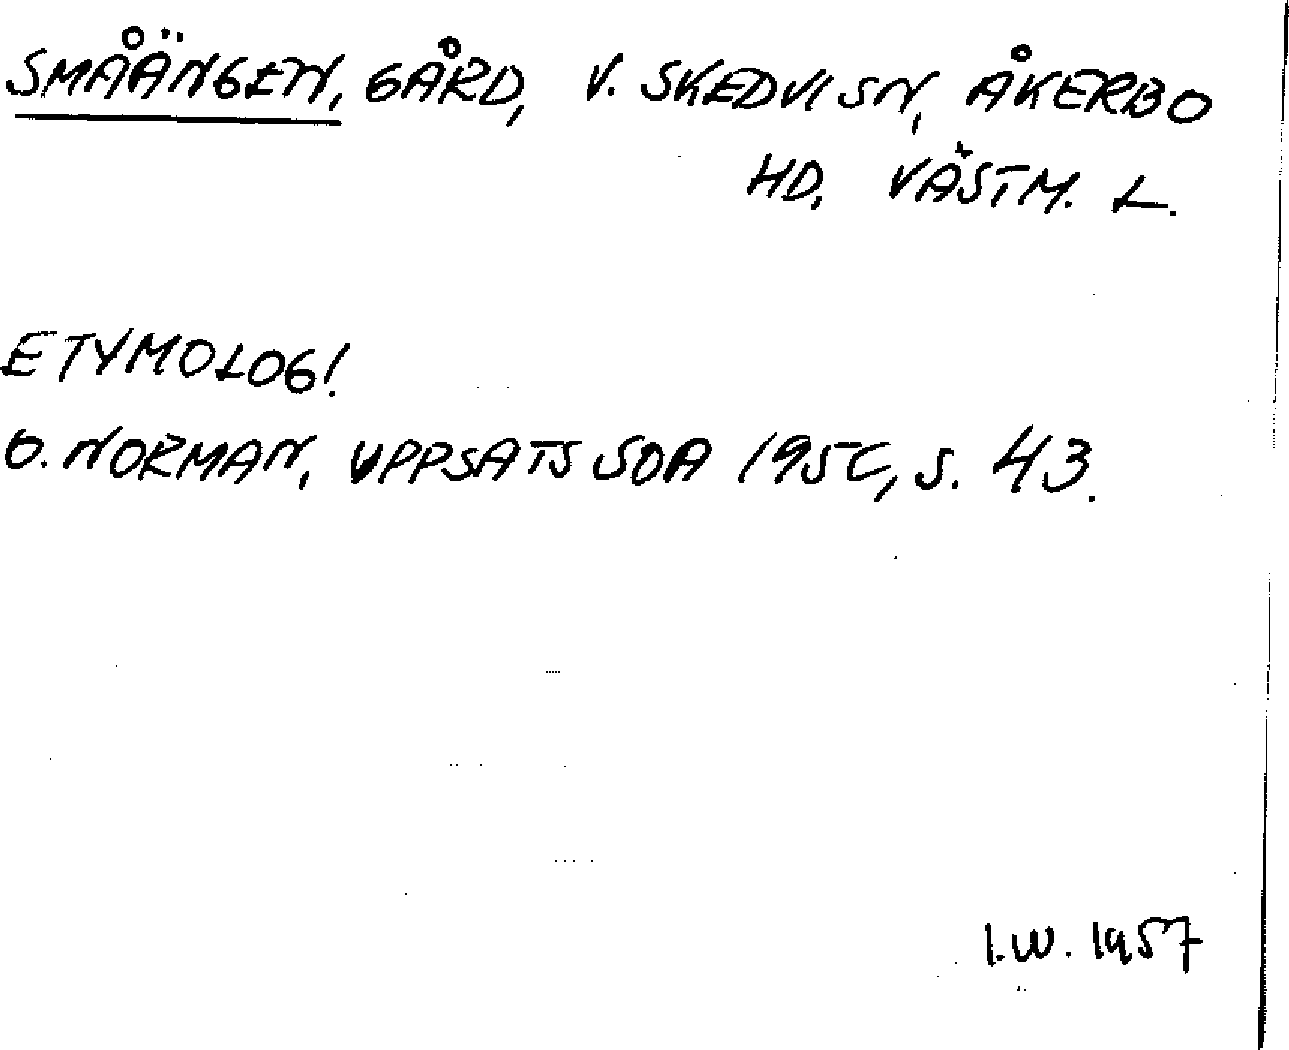 SMÅÄNGEN, GÅRD, V. SKEDVI SN, ÅKERBO
HD, VÄSTM. L.
ETYMOLOG!
O. NORMAN, UPPSATS SOA 195C, S. 43.
I.W. 1957